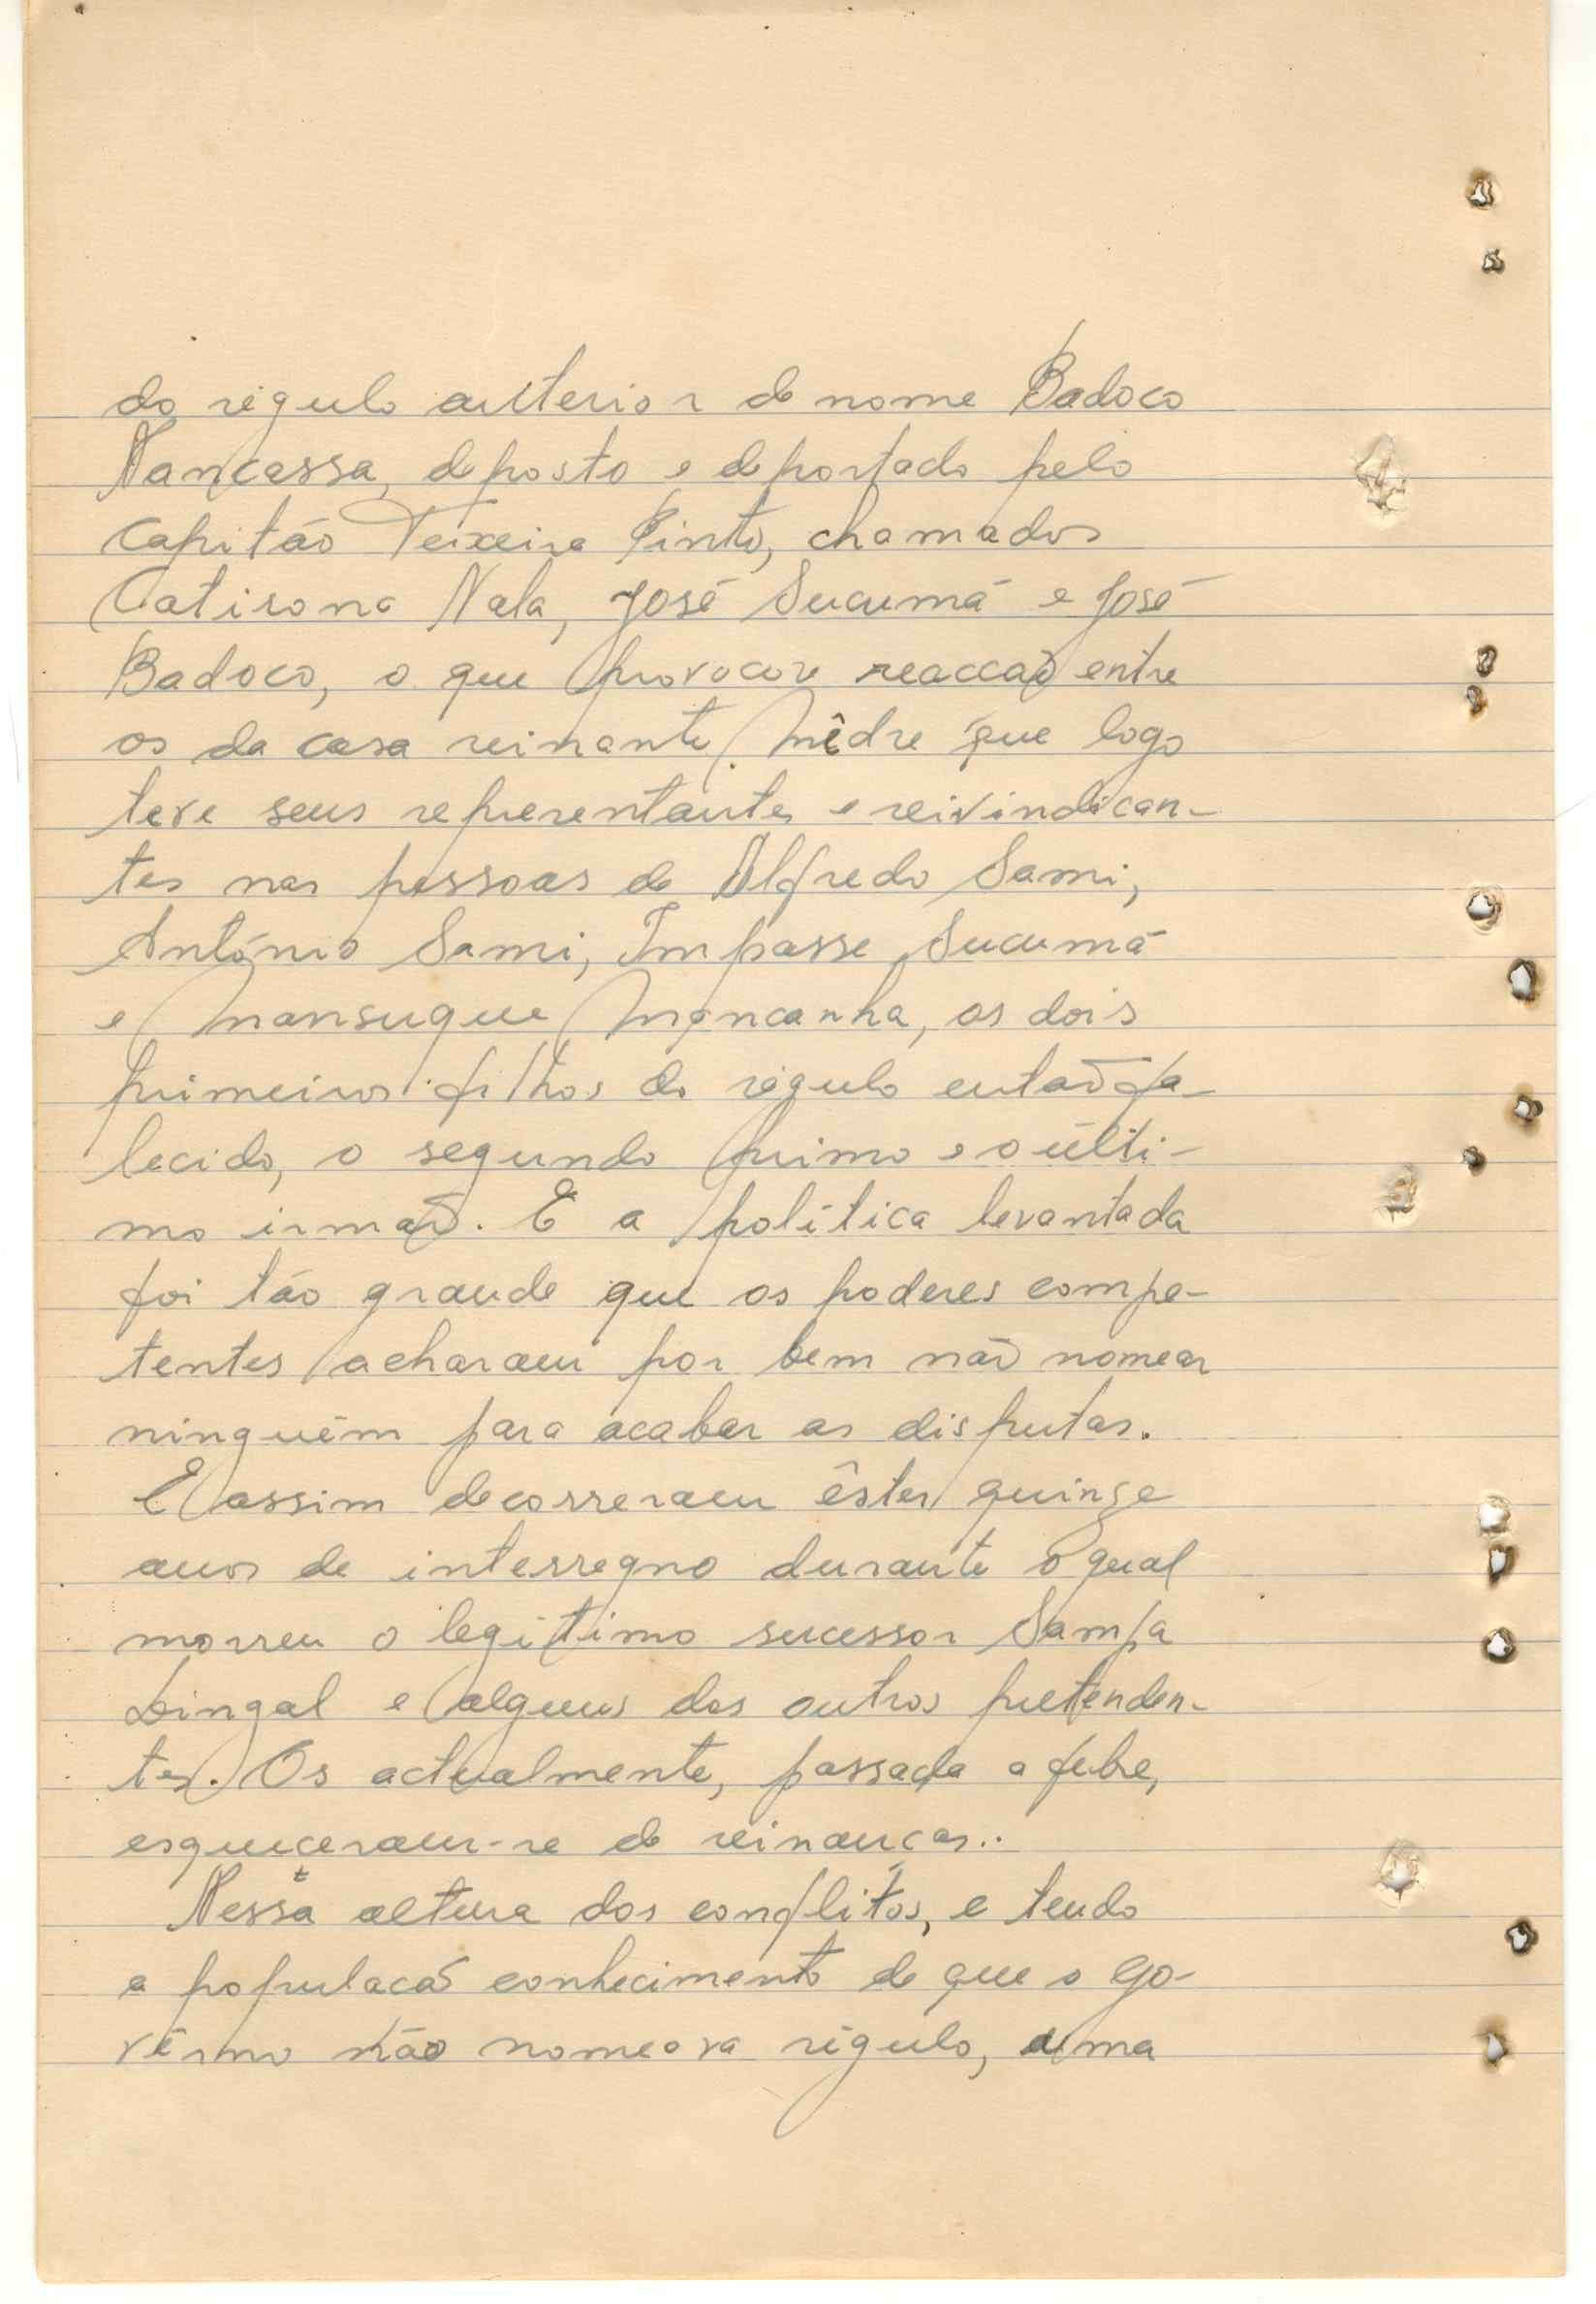 do régulo anterior de nome Badoco
Nancassa, deposto e deportado pelo
capitão Teixeira Pinto, chamados
Catirona Nala, José Sucumá e José
Badoco, o que provocou reaccão entre
os da casa reinante Mêdre que logo
teve seus representantes e reivindican-
tes nas pessoas de Alfredo Sami,
António Sami, Impasse Sucumá
e Mansugue Mancanha, os dois
primeiros filhos do régulo então fa-
lecido, o segundo primo e o últi-
mo irmão. E a política levantada
foi tão grande que os poderes compe-
tentes acharam por bem não nomear
ninguém para acabar as disputas.
E assim decorreram êstes quinze
anos de interregno durante o qual
morreu o legítimo sucessor Sampa
Dingal e alguns dos outros pretenden-
tes. Os actualmente, passada a febre,
esqueceram-se de reinanças..
Nessa altura dos conflitos, e tendo
a populacão conhecimento de que o go-
vêrno não nomeava régulo, uma